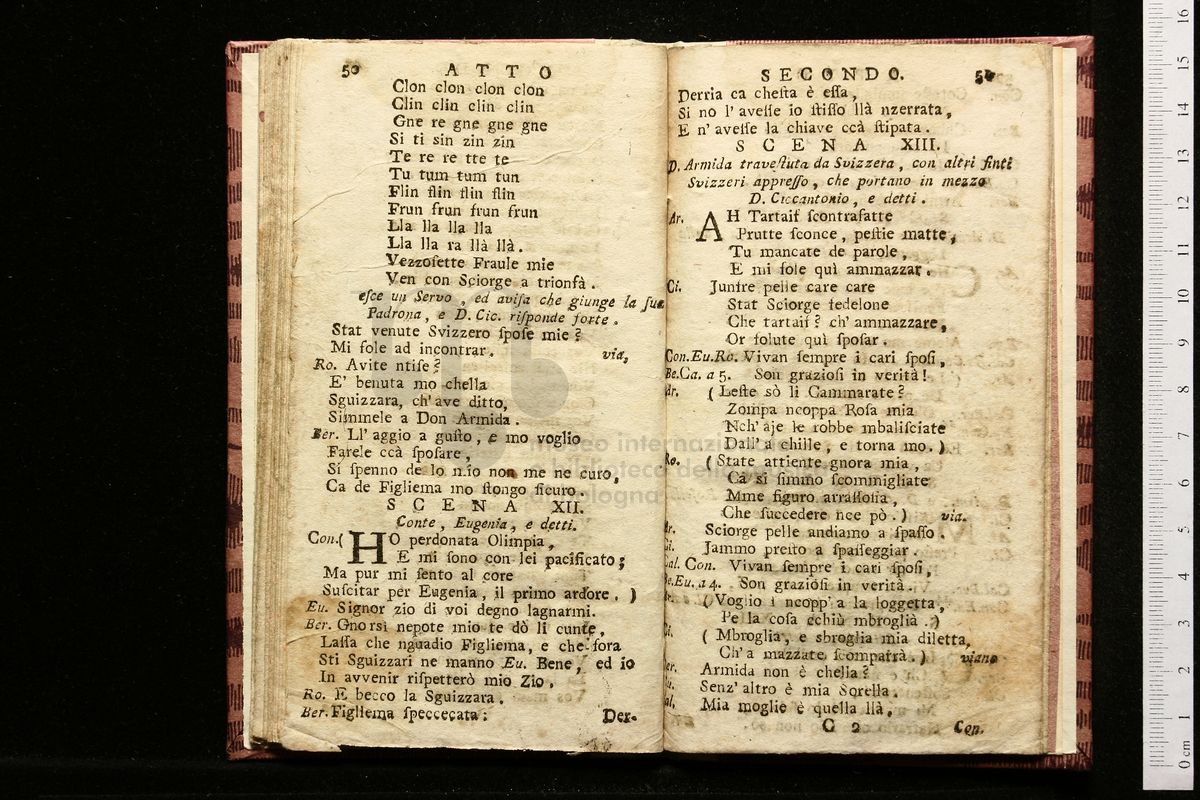 50 ATTO
Clon clon clon clon
Clin clin clin clin
Gne re gne gne gne
Si ti sin zin zin
Te re re tte te
Tu tum tum tun
Flin flin flin flin
Frun frun frun frun
Lla lla lla lla
Lla lla ra llà llà.
Vezzoſette Fraule mie
Ven con Sciorge a trionfà.
eſce un Servo, ed aviſa che giunge la ſua
Padrona, e D. Cic. riſponde forte.
Stat venute Svizzero ſpoſe mie?
Mi ſole ad incontrar. via,
Ro. Avite ntiſe?
E' benuta mo chella
Sguizzara, ch' ave ditto,
Simmele a Don Armida.
Ber. Ll' aggio a guſto, e mo voglio
Farele ccà ſpoſare,
Si ſpenno de lo n.io non me ne curo,
Ca de Figliema mo ſtongo ſicuro.
SCENA XII.
Conte, Eugenia, e detti.
Con. ( HO perdonata Olimpia,
E mi ſono con lei pacificato;
Ma pur mi ſento al core
Suſcitar per Eugenia, il primo ardore. )
Eu. Signor zio di voi degno lagnarmi.
Ber. Gnorsì nepote mio te dò li cunte,
Laſſa che nguadio Figliema, e che fora
Sti Sguizzari ne manno Eu. Bene, ed io
In avvenir riſpetterò mio Zio.
Ro. E becco la Sguizzara.
Ber. Figliema ſpeccecata:
Der-
SECONDO. 51
Derria ca cheſta è eſſa,
Si no l' aveſſe io ſtiſſo llà nzerrata,
E n' aveſſe la chiave ccà ſtipata.
SCENA XIII.
D. Armida traveſtuta da Svizzera, con altri finti
Svizzeri appreſſo, che portano in mezzo
D. Ciccantonio, e detti.
Ar. AH Tartaif ſcontrafatte
Prutte ſconce, peſtie matte,
Tu mancate de parole,
E mi ſole quì ammazzar.
Ci. Junfre pelle care care
Stat Sciorge fedelone
Che tartaif? ch' ammazzare,
Or ſolute quì ſpoſar.
Con. Eu. Ro. Vivan ſempre i cari ſpoſi,
Be. Ca. a 5. Son grazioſi in verità!
Ar. ( Leſte sò li Cammarate?
Zompa ncoppa Roſa mia
Nch' aje le robbe mbaliſciate
Dall' a chille, e torna mo. )
Ro. ( State attiente gnora mia,
Ca si ſimmo ſcommigliate
Mme figuro arraſſoſia,
Che ſuccedere nce pò. ) via.
Ar. Sciorge pelle andiamo a ſpaſſo.
Ci. Jammo preſto a ſpaſſeggiar.
Cal. Con. Vivan ſempre i cari ſpoſi,
Be. Eu. a 4. Son grazioſi in verità.
Ar. ( Voglio i ncopp' a la loggetta,
Pe la coſa cchiù mbroglià. )
Ci. ( Mbroglia, e sbroglia mia diletta,
Ch' a mazzate ſcomparrà. ) viano
Ber. Armida non è chella?
Eu. Senz' altro è mia Sorella.
Cal. Mia moglie è quella llà.
C 2 Con.